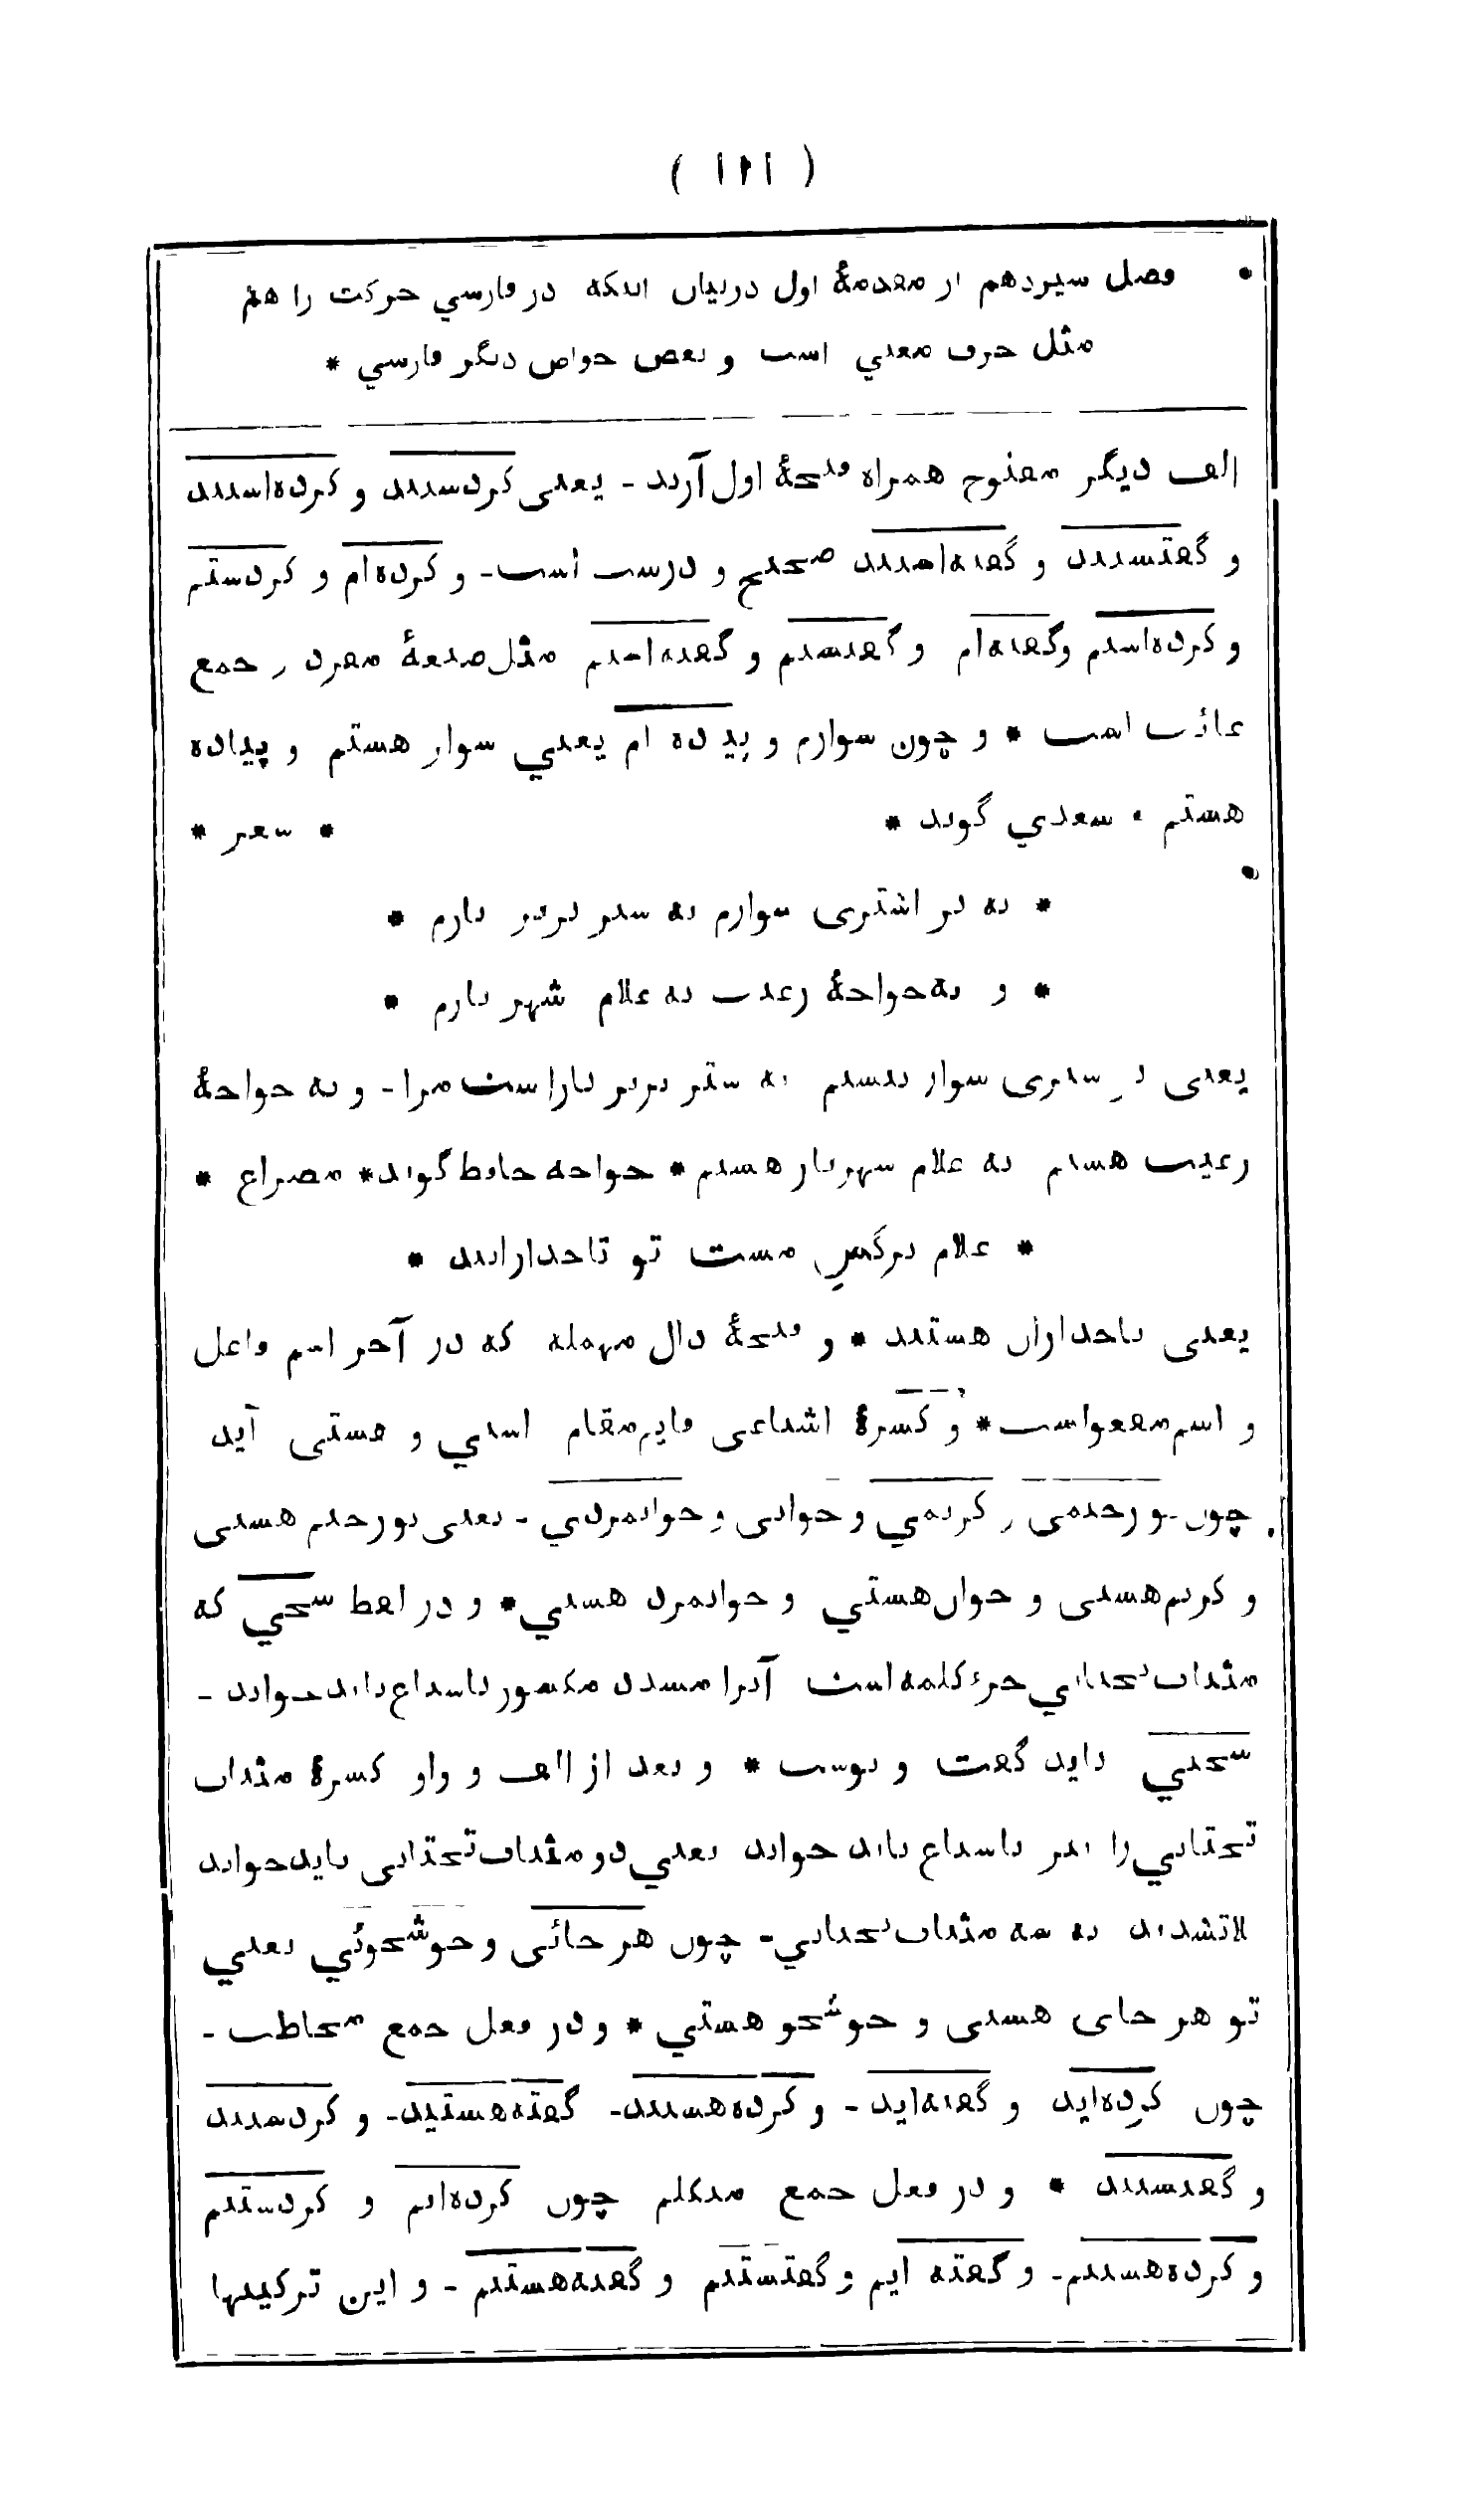 ( ۱۲۱ )
فصل سيزدهم از مقدمهٔ اول دربيان اينكه در فارسي حركت را هم
مثل حرف معني است و بعض خواص ديگر فارسي *
الف ديگر مفتوح همراه فتحهٔ اول آرند - يعنى كردستند و كرده‌استند
و گفتستند و گفته‌استند صحيح و درست است - و كرده‌ام و كردستم
و كرده‌استم و گفته‌ام و گفتستم و گفته‌استم مثل صيغهٔ مفرد و جمع
غائب است * و چون سوارم و پياده ام يعني سوار هستم و پياده
هستم * سعدي گويد * * شعر *
* نه بر اشترى سوارم نه شتر بزير بارم *
* و نه خواجهٔ رعيت نه غلام شهر يارم *
يعنى بر شترى سوار نيستم نه شتر بزير باراست مرا - و نه خواجهٔ
رعيت هستم نه غلام شهريار هستم * خواجه حافظ گويد * مصراع *
* غلام نرگس مست تو تاجدارانند *
يعنى تاجداران هستند * و فتحهٔ دال مهمله كه در آخر اسم فاعل
و اسم مفعولست * و كسرهٔ اشباعى قايم‌مقام استي و هستى آيد
چون تو رحيمى و كريمي و جوانى و جوانمردي - يعنى تو رحيم هستى
و كريم هستى و جوان هستي و جوانمرد هستي * و در لفظ سخي كه
مثناة تحتاني جزء كلمه است آنرا مشدد مكسور باشباع بايد خواند -
سخيي بايد گفت و نوشت * و بعد از الف و واو كسرهٔ مثناة
تحتاني را نيز باشباع بايد خواند يعني دو مثناة تحتانى بايد خواند
لاتشديد نه سه مثناة تحتاني - چون هر جائى و خوشخوئي يعني
تو هر جاى هستى و خوشخو هستي * و در فعل جمع مخاطب -
چون كرده‌ايد و گفته‌ايد - و كرده هستيد - گفته هستيد - و كردستيد
و گفتستيد * و در فعل جمع متكلم چون كرده‌ايم و كردستيم
و كرده هستيم - و گفته ايم و گفتستيم و گفته هستيم - و اين تركيبها